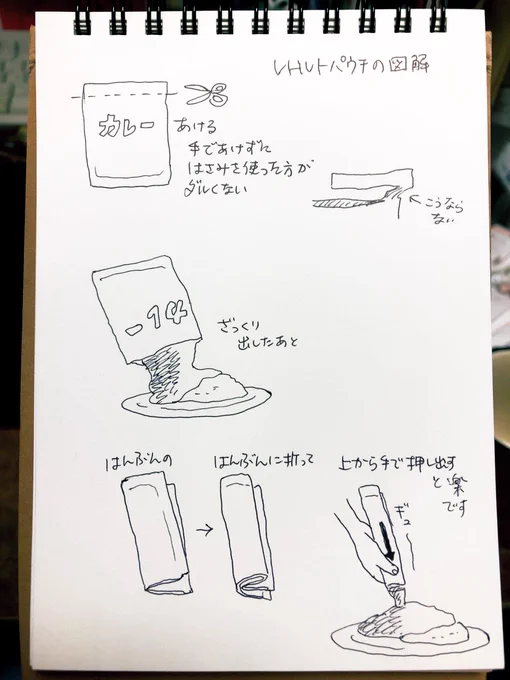 レトルトパウチの図解
カレー
あける
手であけずに
はさみを使った方が
ダルくない
こうなら
ない
カレー
ざっくり
出したあと
はんぶんの
はんぶんに折って
上から手で押し出す
と楽
です
ギュー